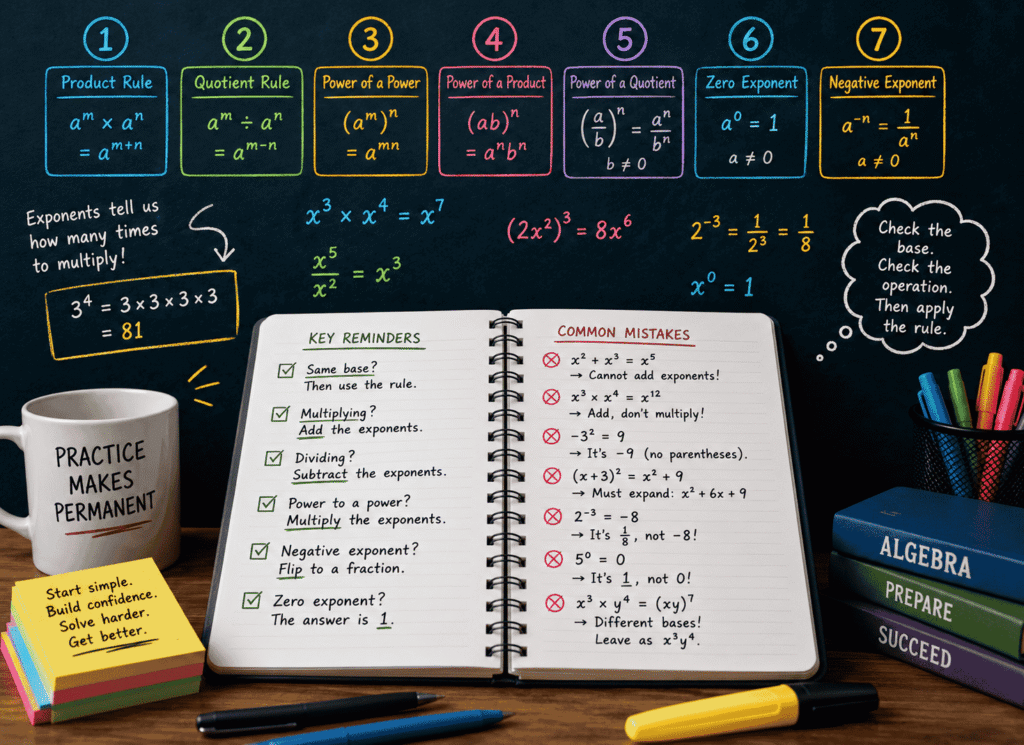 1
Product Rule
aᵐ × aⁿ
= aᵐ⁺ⁿ
2
Quotient Rule
aᵐ ÷ aⁿ
= aᵐ⁻ⁿ
3
Power of a Power
(aᵐ)ⁿ
= aᵐⁿ
4
Power of a Product
(ab)ⁿ
= aⁿbⁿ
5
Power of a Quotient
(a/b)ⁿ = aⁿ/bⁿ
b ≠ 0
6
Zero Exponent
a⁰ = 1
a ≠ 0
7
Negative Exponent
a⁻ⁿ = 1/aⁿ
a ≠ 0
Exponents tell us
how many times
to multiply!
3⁴ = 3 × 3 × 3 × 3
= 81
x³ × x⁴ = x⁷
x⁵/x² = x³
(2x²)³ = 8x⁶
2⁻³ = 1/2³ = 1/8
x⁰ = 1
Check the
base.
Check the
operation.
Then apply
the rule.
KEY REMINDERS
Same base?
Then use the rule.
Multiplying?
Add the exponents.
Dividing?
Subtract the exponents.
Power to a power?
Multiply the exponents.
Negative exponent?
Flip to a fraction.
Zero exponent?
The answer is 1.
COMMON MISTAKES
x² + x³ = x⁵
→ Cannot add exponents!
x³ × x⁴ = x¹²
→ Add, don't multiply!
−3² = 9
→ It's −9 (no parentheses).
(x+3)² = x² + 9
→ Must expand: x² + 6x + 9
2⁻³ = −8
→ It's 1/8, not −8!
5⁰ = 0
→ It's 1, not 0!
x³ × y⁴ = (xy)⁷
→ Different bases!
Leave as x³y⁴.
PRACTICE
MAKES
PERMANENT
Start simple.
Build confidence.
Solve harder.
Get better.
ALGEBRA
PREPARE
SUCCEED